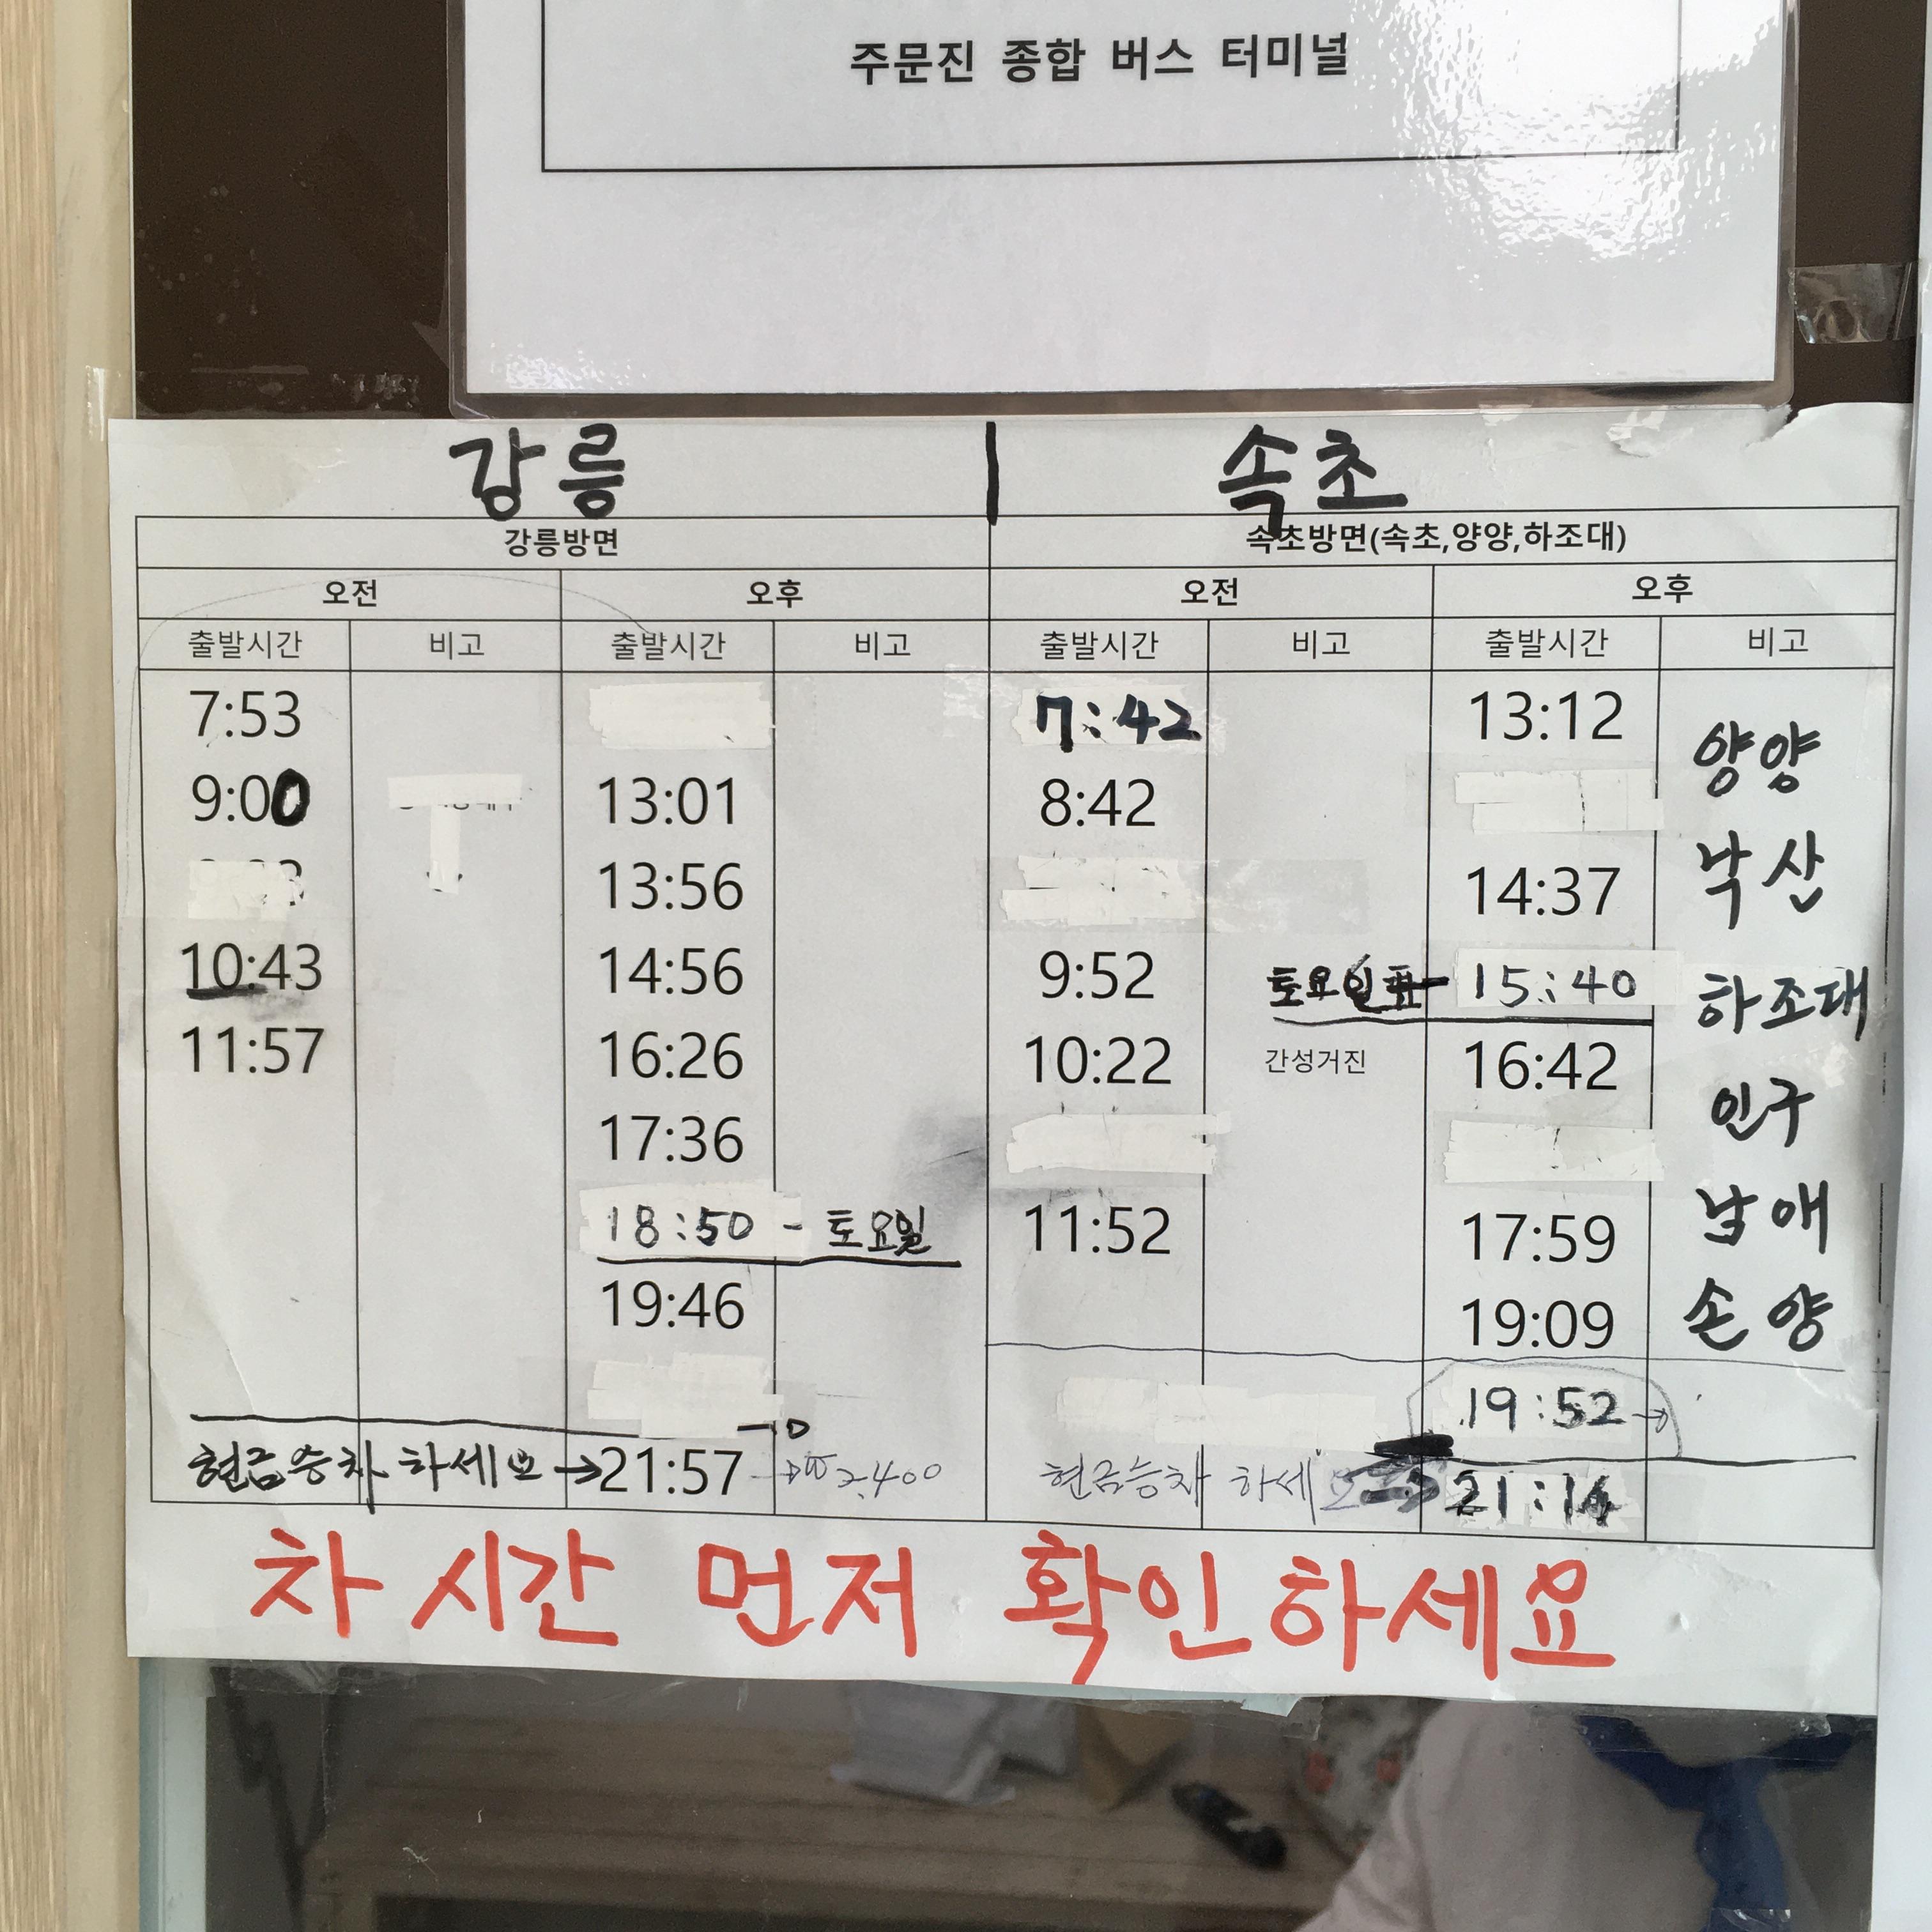 주문진 종합 버스 터미널
강릉 | 속초
강릉방면 속초방면(속초,양양,하조대)
오전 오후 오전 오후
출발시간 비고 출발시간 비고 출발시간 비고 출발시간 비고
7:53 7:42 13:12 양양
9:00 13:01 8:42
13:56 14:37 낙산
10:43 14:56 9:52 토요일 15:40 하조대
11:57 16:26 10:22 간성거진 16:42 인구
17:36
18:50 - 토요일 11:52 17:59 남애
19:46 19:09 손양
19:52 →
현금승차 하세요 → 21:57 → ₩2,400 현금승차 하세요 21:14
차 시간 먼저 확인하세요